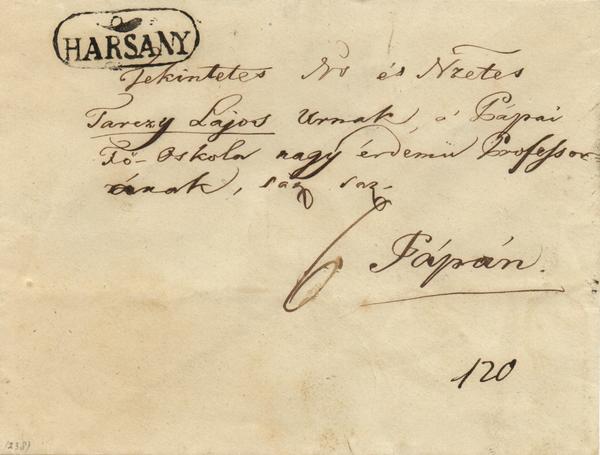 HARSANY
Tekintetes Ns és Nzetes
Tarczy Lajos Urnak, á Pápai
Fő-Oskola nagy érdemü Professor-
ának,
6 Pápán.
120
(238)